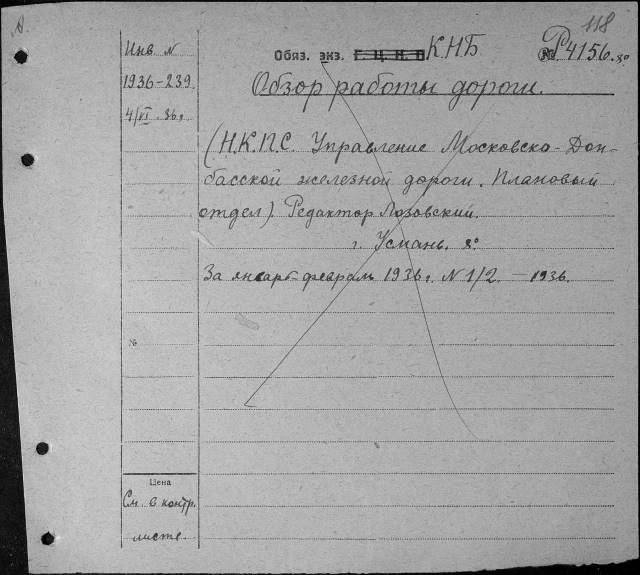 А.
118
Инв. N
1936-239
4/VI 36г.
Обяз. экз. Г.Ц.Н.Б КНБ
№ Р4156 8°
Обзор работы дороги.
(Н.К.П.С. Управление Московско-Дон-
басской железной дороги. Плановый
отдел). Редактор Лозовский.
г. Усмань. 8°
За январь-февраль 1936г. N 1/2. – 1936.
№
Цена
См. в контр.
листе.